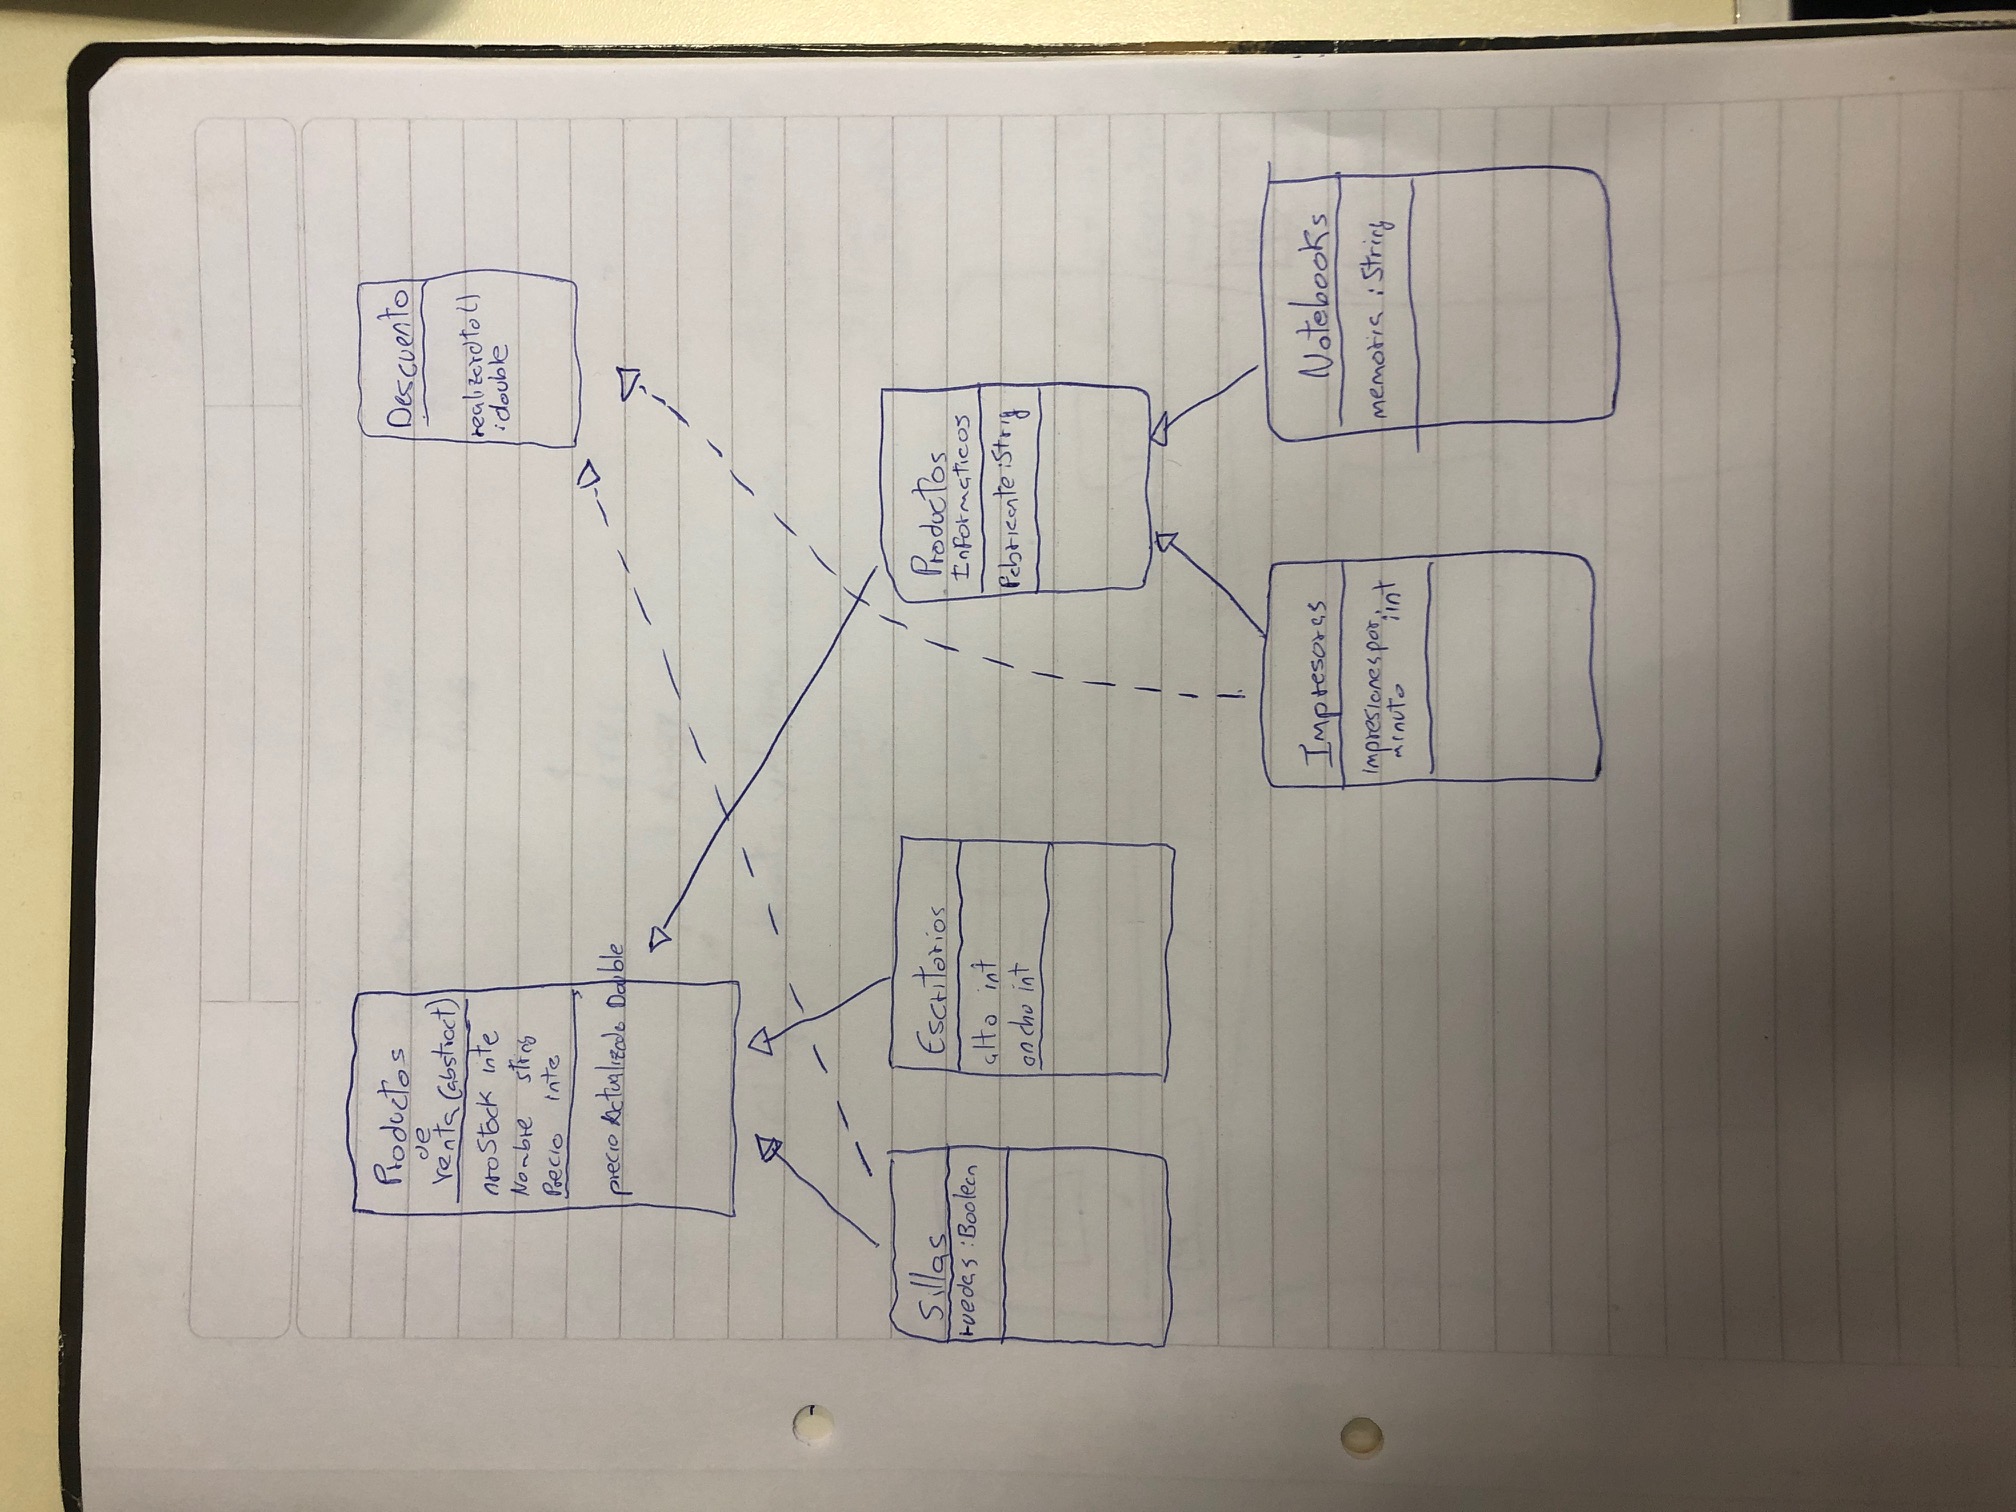 Productos
de
venta (abstract)
nroStock inte
Nombre string
Precio inte
precio Actualizado Double
Descuento
realizardto()
:double
Sillas
ruedas :Boolean
Escritorios
alto int
ancho int
Productos
Informaticos
Fabricante :String
Impresoras
impresiones por
minuto :int
Notebooks
memoria : String